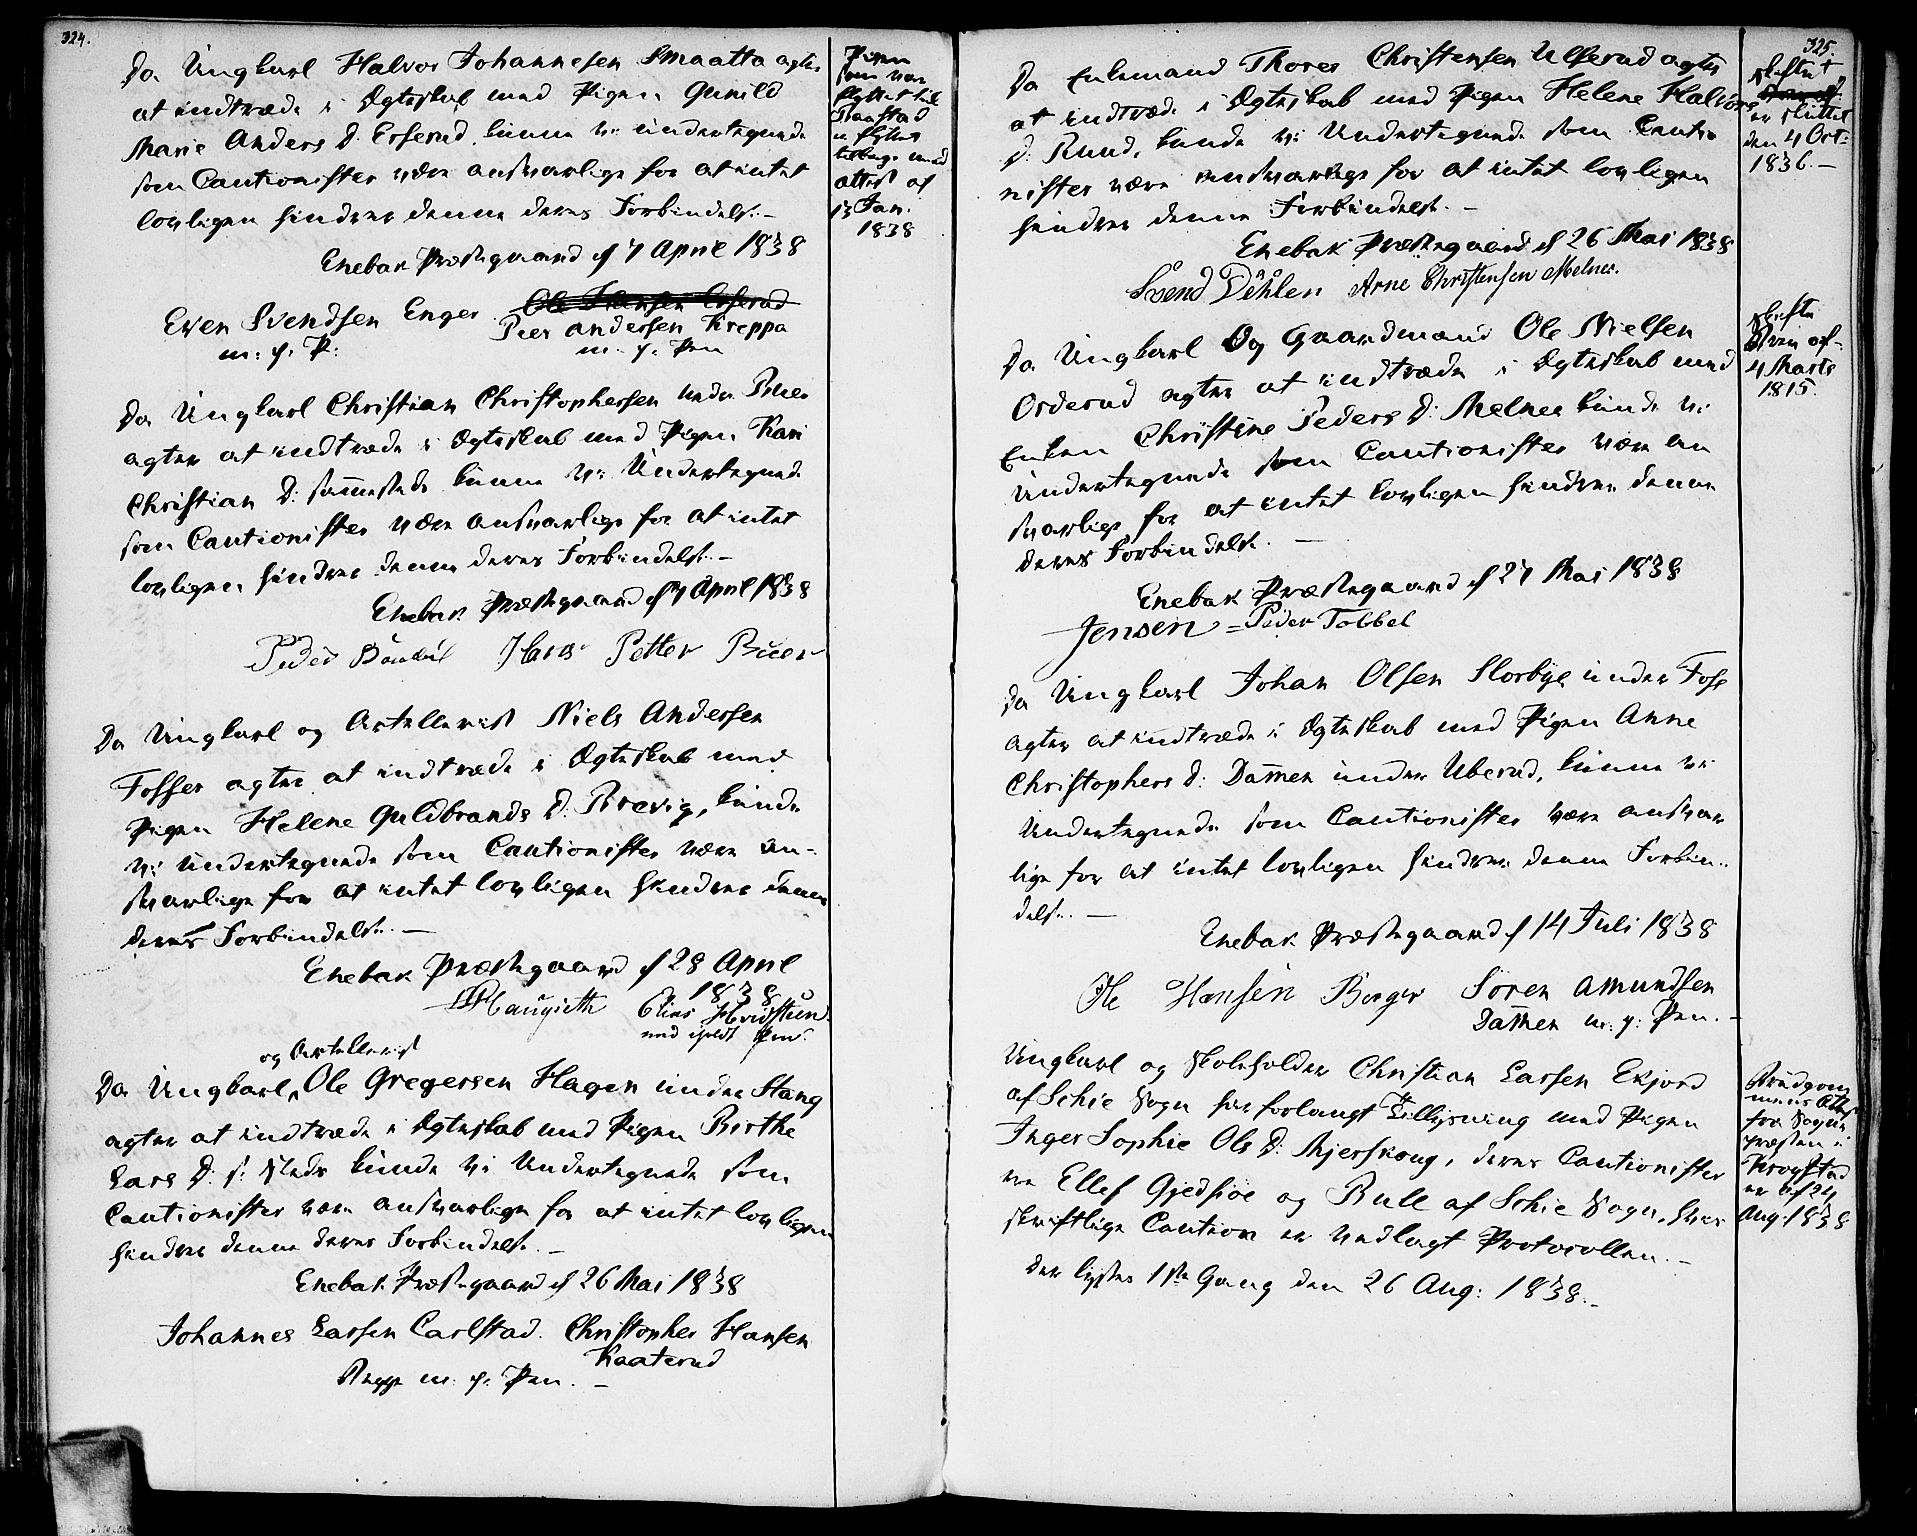 324.
Da Ungkarl Halvor Johannesen Smaatta agter
at indtræde i Ægteskab med Pigen Gunild
Marie Anders D. Erserud kunne vi undertegnede
som Cautionister være ansvarlige for at intet
lovligen hindrer denne deres Forbindelse. –
Enebak Præstegaard d 7 April 1838
Even Svendsen Enger
Peer Andersen Kreppa
m. f. P:
m. f. Pen
Pigen
som var
flyttet til
er flyttet
tilbage med
attest af
13 Jan.
1838
Da Ungkarl Christian Christophersen under Buer
agter at indtræde i Ægteskab med Pigen Kari
Christian D: sammesteds kunne vi Undertegnede
som Cautionister være ansvarlige for at intet
lovligen hindrer denne deres Forbindelse. –
Enebak Præstegaard d 7 April 1838
Peder Hans Petter Buer
Da Ungkarl og Artellerist Niels Andersen
Fosser agter at indtræde i Ægteskab med
Pigen Helene Guldbrands D: Brevig, kunde
vi undertegnede som Cautionister være an-
svarlige for at intet lovligen hindrer denne
deres Forbindelse. –
Enebak Præstegaard d 28 April
1838
Elias
med iholdt Pen.
og Artellerist
Da Ungkarl, Ole Gregersen Hagen under Stang
agter at indtræde i Ægteskab med Pigen Birthe
Lars D. s: Steds kunde vi Undertegnede som
Cautionister være ansvarlige for at intet lovligen
hindrer denne deres Forbindelse. –
Enebak Præstegaard d 26 Mai 1838
Johannes Larsen Carlstad. Christopher Hansen
Kaaterud
Begge m. f. Pen. –
325.
Da Enkemand Thores Christensen Ulserud agter
at indtræde i Ægteskab med Pigen Helene Halvors
D: Ruud, kunde vi Undertegnede som Cautio
nister være ansvarlige for at intet lovligen
hindrer denne Forbindelse. –
Enebak Præstegaard d 26 Mai 1838
Svend Døhlen Arne Christensen Melnes.
Skiftet
er sluttet
den 4 Oct:
1836. –
Da Ungkarl Og Gaardmand Ole Nielsen
Orderud agter at indtræde i Ægteskab med
Enken Christine Peders D: Melnes kunde vi
Undertegnede som Cautionister være an
svarlige for at intet lovligen hindrer denne
deres Forbindelse. –
Enebak Præstegaard d 27 Mai 1838
Jensen = Peder Tobbel
Skifte
Brev af
4 Marts
1815.
Da Ungkarl Johan Olsen Slorbye under Foss
agter at indtræde i Ægteskab med Pigen Anne
Christophers D: Dammen under Uberud, kunne vi
Undertegnede som Cautionister være ansvar
lige for at intet lovligen hindrer denne Forbin-
delse. –
Enebak Præstegaard d 14 Juli 1838
Ole Hansen Berger Sören Amundsen
Dammen m. f. Pen. –
Ungkarl og Skoleholder Christian Larsen Ekjord
af Schie Sogn har forlangt Tillysning med Pigen
Inger Sophie Ols D: Mjerskoug, deres Cautionister
ere Ellef Gjedsiøe og Bull af Schie Sogn, hvis
skriftlige Caution er vedlagt Protocollen. –
Der lystes 1ste Gang den 26 Aug: 1838. –
Brudgom
mens Attest
fra Sogne
præsten i
Krogstad
er af 24
Aug: 1838